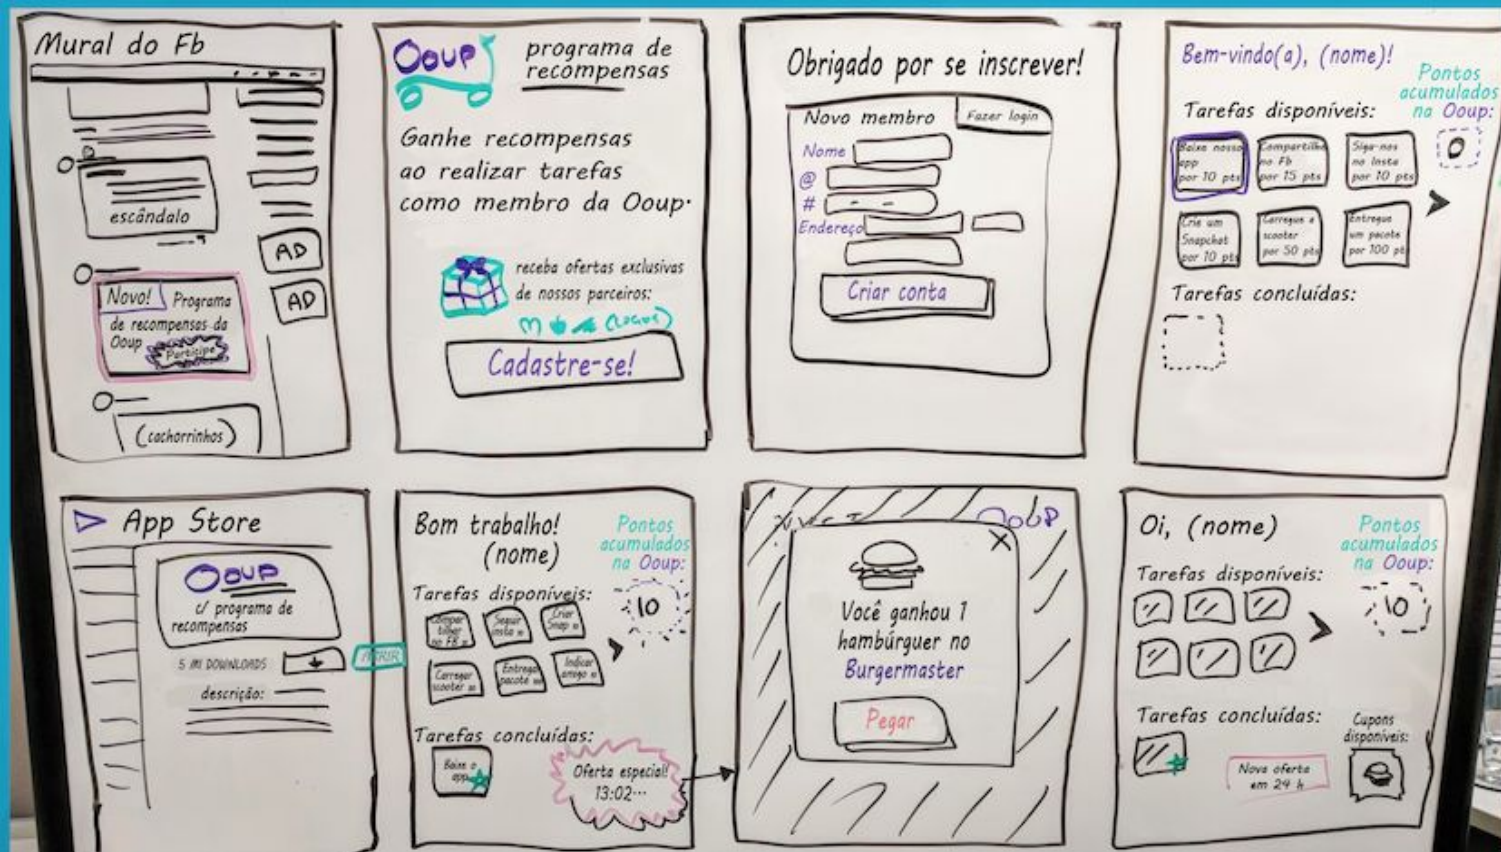 Mural do Fb
escândalo
AD
AD
Novo! Programa
de recompensas da
Ooup
Participe
(cachorrinhos)
Ooup
programa de
recompensas
Ganhe recompensas
ao realizar tarefas
como membro da Ooup.
receba ofertas exclusivas
de nossos parceiros:
(LOGOS)
Cadastre-se!
Obrigado por se inscrever!
Novo membro
Fazer login
Nome
@
#
Endereço
Criar conta
Bem-vindo(a), (nome)!
Pontos
acumulados
na Ooup:
0
Tarefas disponíveis:
Baixe nosso
app
por 10 pts
Compartilhe
no Fb
por 15 pts
Siga-nos
no Insta
por 10 pts
Crie um
Snapchat
por 10 pts
Carregue a
scooter
por 50 pts
Entregue
um pacote
por 100 pt
Tarefas concluídas:
App Store
Ooup
c/ programa de
recompensas
5 MI DOWNLOADS
ABRIR
descrição:
Bom trabalho!
(nome)
Pontos
acumulados
na Ooup:
10
Tarefas disponíveis:
Compar
tilhar
no FB
Seguir
insta
Criar
Snap
Carregar
scooter
Entrega
pacote
Indicar
amigo
Tarefas concluídas:
Baixe o
app
Oferta especial!
13:02...
OoUP
X
Você ganhou 1
hambúrguer no
Burgermaster
Pegar
Oi, (nome)
Pontos
acumulados
na Ooup:
10
Tarefas disponíveis:
Tarefas concluídas:
Nova oferta
em 24 h
Cupons
disponíveis: